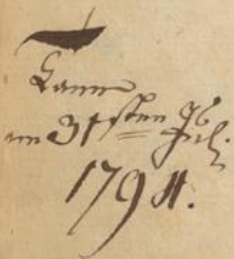 Kam
am 31sten
Jul.
1794.